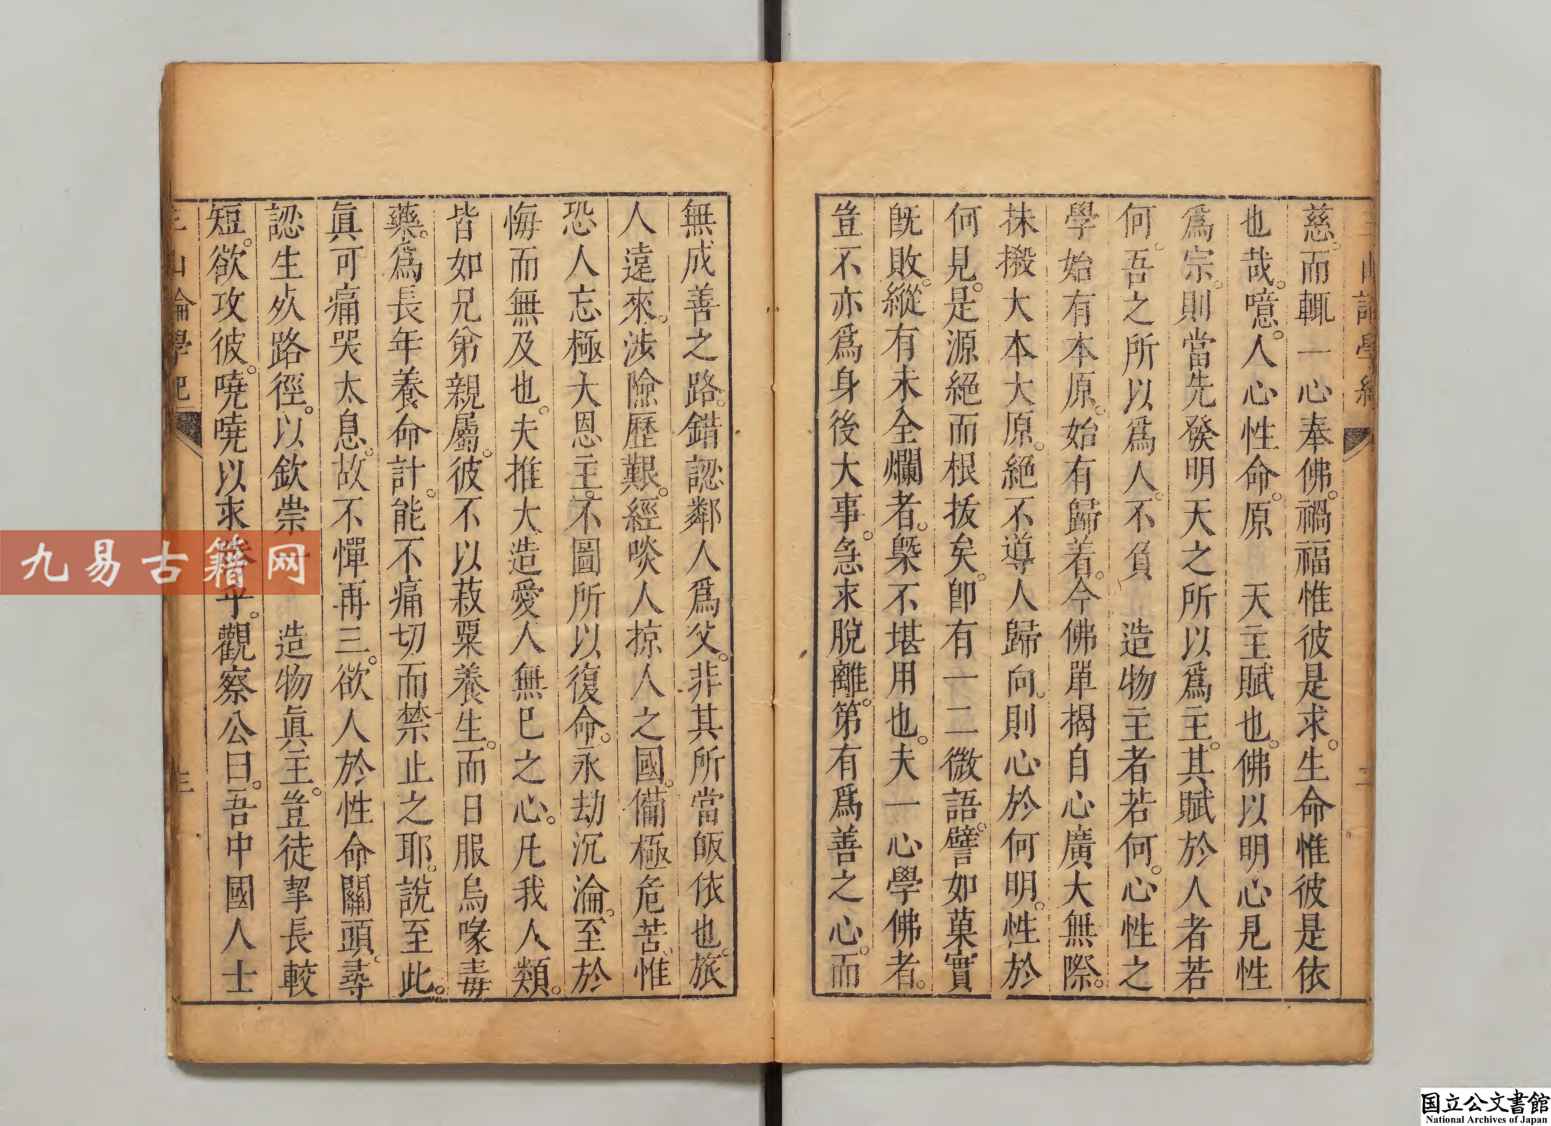 慈。而輒一心奉佛。禍福惟彼是求。生命惟彼是依
也哉。噫。人心性命。原 天主賦也。佛以明心見性
爲宗。則當先發明天之所以爲主。其賦於人者若
何。吾之所以爲人。不負 造物主者若何。心性之
學始有本原。始有歸着。今佛單揭自心廣大無際。
抹搬大本大原。絕不導人歸向。則心於何明。性於
何見。是源絕而根拔矣。卽有一二微語。譬如菓實
旣敗。縱有未全爛者。槩不堪用也。夫一心學佛者。
豈不亦爲身後大事。急求脫離。第有爲善之心。而
無成善之路。錯認鄰人爲父。非其所當皈依也。旅
人遠來。涉險歷艱。經啖人掠人之國。備極危苦。惟
恐人忘極大恩主。不圖所以復命。永劫沉淪。至於
悔而無及也。夫推大造愛人無已之心。凡我人類。
皆如兄弟親屬。彼不以菽粟養生。而日服烏喙毒
藥。爲長年養命計。能不痛切而禁止之耶。說至此。
眞可痛哭太息。故不憚再三。欲人於性命關頭。尋
認生死路徑。以欽崇 造物眞主。豈徒挈長較
短。欲攻彼。嘵嘵以求 乎。觀察公曰。吾中國人士
三山論學紀
二
三山論學紀
三
九易古籍网
国立公文書館
National Archives of Japan